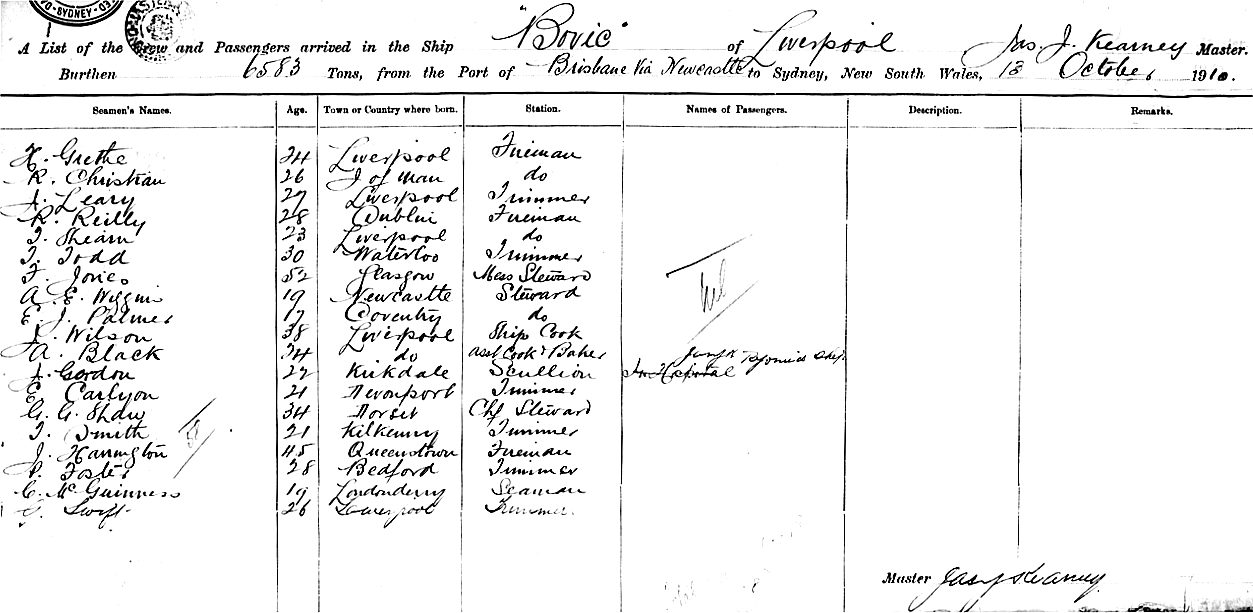 SYDNEY
"Bovic"
A List of the Crew and Passengers arrived in the Ship "Bovic" of Liverpool Jas. J. Kearney Master.
Burthen 6583 Tons, from the Port of Brisbane Via Newcastle to Sydney, New South Wales, 13 October 1910.
Seamen's Names. Age. Town or Country where born. Station. Names of Passengers. Description. Remarks.
H. Grethe 24 Liverpool Fireman
R. Christian 26 I of Man do
J. Leary 27 Liverpool Trimmer
R. Reilly 28 Dublin Fireman
T. Shearn 23 Liverpool do
T. Todd 30 Waterloo Trimmer
F. Jones 52 Glasgow Mess Steward
A. E. Wiggins 19 Newcastle Steward
E. J. Palmer 17 Coventry do
J. Wilson 38 Liverpool Ship Cook
A. Black 24 do Asst Cook & Baker
J. Gordon 22 Kirkdale Scullion In Hospital
E. Carlyon 21 Devonport Trimmer
G. G. Shaw 34 Dorset Chf Steward
T. Smith 21 Kilkenny Trimmer
J. Harrington 45 Queenstown Fireman
P. Foster 28 Bedford Trimmer
C. McGuinness 19 Londonderry Seaman
G. Swift 26 Liverpool Trimmer
Nil
Master Jas J Kearney